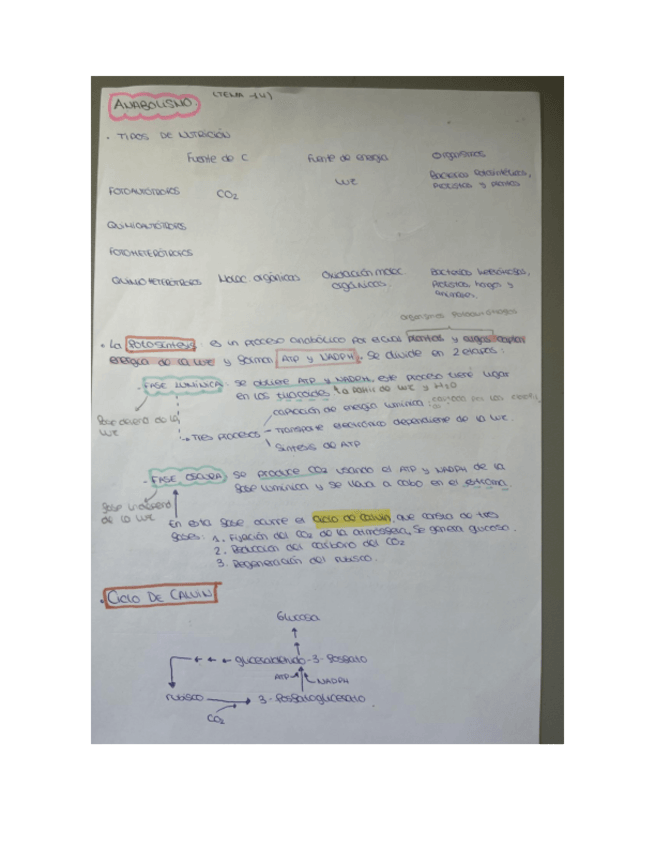 ANABOLISMO (TEMA 14)
• TIPOS DE NUTRICIÓN
Fuente de C Fuente de energía Organismos
FOTOAUTÓTROFOS CO2 LUZ Bacterias fotosintéticas, Protistas y plantas
QUIMIOAUTÓTROFOS
FOTOHETERÓTROFOS
QUIMIOHETERÓTROFOS Molec orgánicas Oxidación molec orgánicas. Bacterias heterótrofas, Protistas, hongos y animales.
organismos fotoautótrofos
• La fotosíntesis: es un proceso anabólico por el cual plantas y algas captan
energía de la luz y forman ATP y NADPH. Se divide en 2 etapas:
- FASE LUMÍNICA: se obtiene ATP y NADPH, este proceso tiene lugar
en los tilacoides a partir de luz y H2O
fase depend de la luz
Tres procesos
captación de energía lumínica: captada por los
Transporte electrónico dependiente de la luz.
Síntesis de ATP
- FASE OSCURA: se produce CO2 usando el ATP y NADPH de la
fase lumínica y se lleva a cabo en el estroma.
fase independ de la luz
En esta fase ocurre el Ciclo de Calvin, que consta de tres
fases: 1. Fijación del CO2 de la atmósfera, Se genera glucosa.
2. Reducción del carbono del CO2
3. Regeneración del rubisco.
• CICLO DE CALVIN
Glucosa
gliceraldehido-3-fosfato
ATP NADPH
rubisco 3-fosfoglicerato
CO2